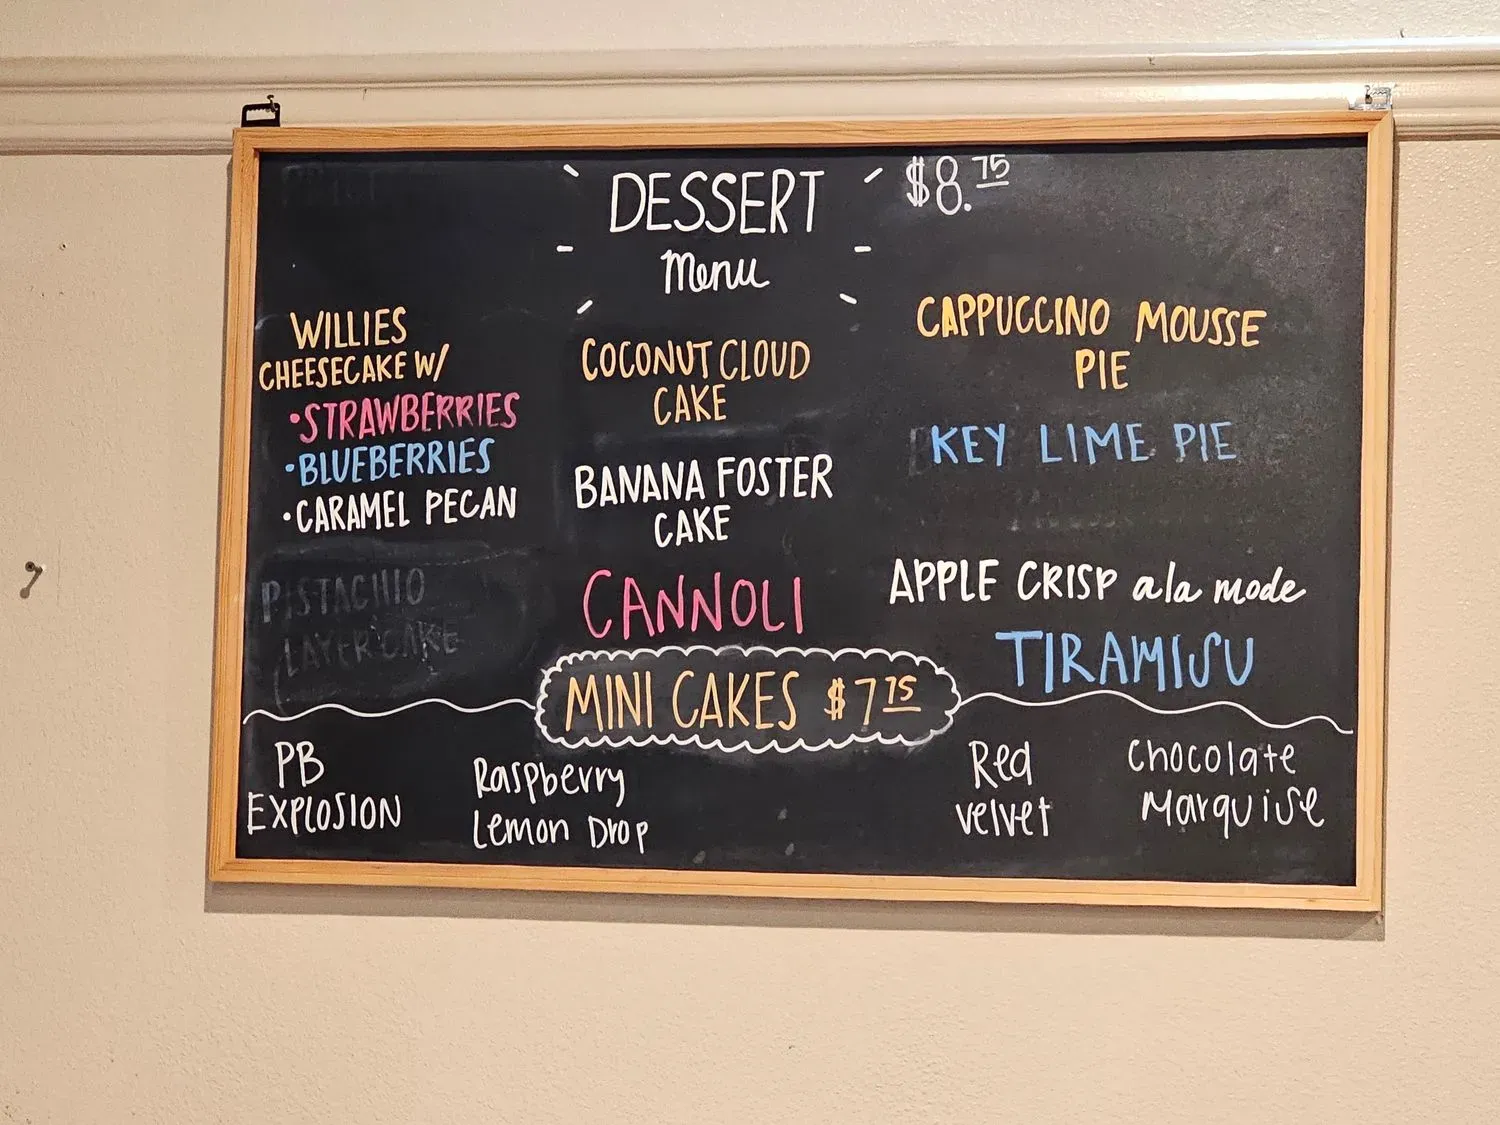 DESSERT
Menu
$8.75
WILLIES
CHEESECAKE W/
•STRAWBERRIES
•BLUEBERRIES
•CARAMEL PECAN
PISTACHIO
LAYER CAKE
COCONUT CLOUD
CAKE
BANANA FOSTER
CAKE
CANNOLI
CAPPUCCINO MOUSSE
PIE
KEY LIME PIE
APPLE CRISP ala mode
TIRAMISU
MINI CAKES $7.75
PB
EXPLOSION
Raspberry
Lemon Drop
Red
velvet
Chocolate
Marquise